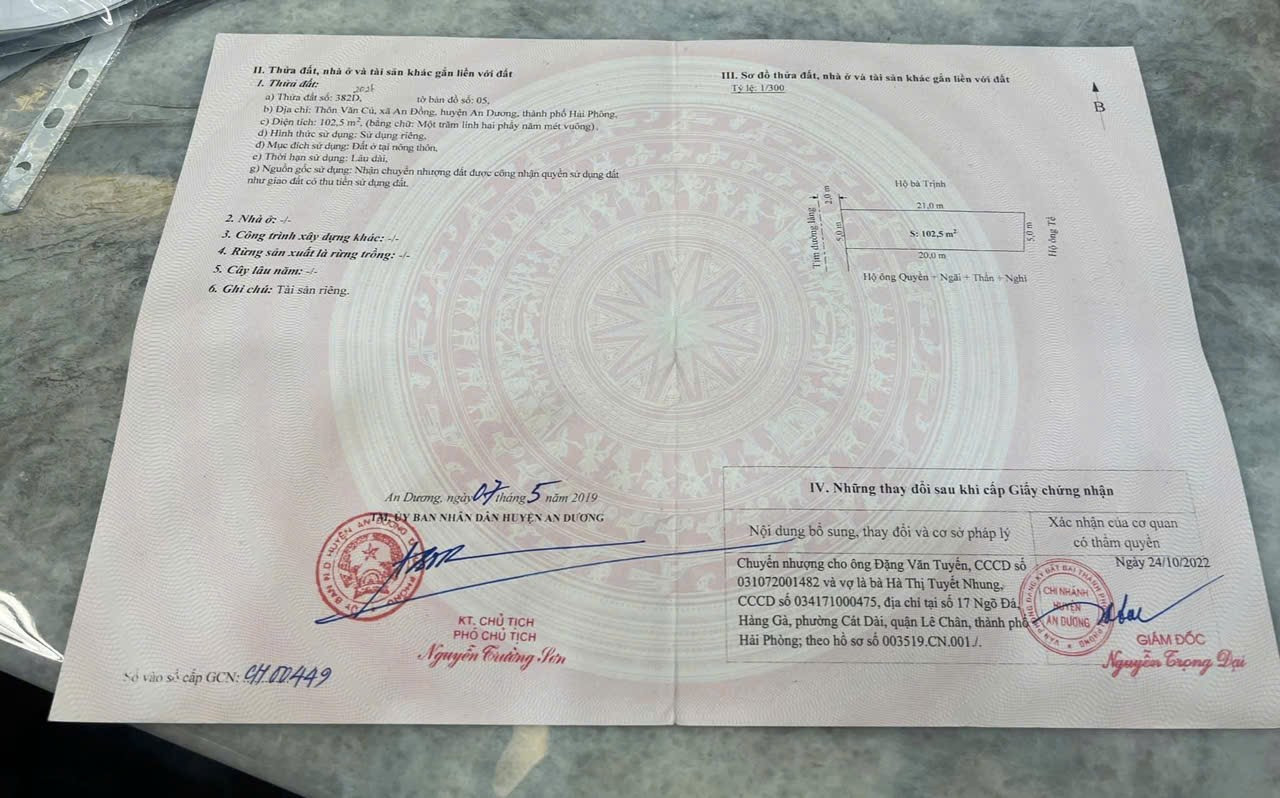 II. Thửa đất, nhà ở và tài sản khác gắn liền với đất
1. Thửa đất:
a) Thửa đất số: 382D, tờ bản đồ số: 05,
b) Địa chỉ: Thôn Văn Cú, xã An Đồng, huyện An Dương, thành phố Hải Phòng,
c) Diện tích: 102,5 m², (bằng chữ: Một trăm linh hai phảy năm mét vuông),
d) Hình thức sử dụng: Sử dụng riêng,
đ) Mục đích sử dụng: Đất ở tại nông thôn,
e) Thời hạn sử dụng: Lâu dài,
g) Nguồn gốc sử dụng: Nhận chuyển nhượng đất được công nhận quyền sử dụng đất
như giao đất có thu tiền sử dụng đất.
2. Nhà ở: -/-
3. Công trình xây dựng khác: -/-
4. Rừng sản xuất là rừng trồng: -/-
5. Cây lâu năm: -/-
6. Ghi chú: Tài sản riêng.
An Dương, ngày 07 tháng 5 năm 2019
TM. ỦY BAN NHÂN DÂN HUYỆN AN DƯƠNG
KT. CHỦ TỊCH
PHÓ CHỦ TỊCH
Nguyễn Trường Sơn
Số vào sổ cấp GCN: CH.00449
III. Sơ đồ thửa đất, nhà ở và tài sản khác gắn liền với đất
Tỷ lệ: 1/300
B
Hộ bà Trịnh
21,0 m
2,0 m
Tim đường làng
5,0 m
S: 102,5 m²
5,0 m
Hộ ông Tẻ
20,0 m
Hộ ông Quyền + Ngãi + Thần + Nghi
IV. Những thay đổi sau khi cấp Giấy chứng nhận
Nội dung bổ sung, thay đổi và cơ sở pháp lý
Xác nhận của cơ quan
có thẩm quyền
Chuyển nhượng cho ông Đặng Văn Tuyến, CCCD số
031072001482 và vợ là bà Hà Thị Tuyết Nhung,
CCCD số 034171000475, địa chỉ tại số 17 Ngõ Đá,
Hàng Gà, phường Cát Dài, quận Lê Chân, thành phố
Hải Phòng; theo hồ sơ số 003519.CN.001./.
Ngày 24/10/2022
CHI NHÁNH
HUYỆN
AN DƯƠNG
GIÁM ĐỐC
Nguyễn Trọng Đại